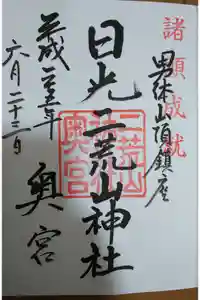 諸願成就
男体山頂鎮座
日光二荒山神社
奥宮
二荒山
神社
奥宮
平成二十五年
六月二十二日